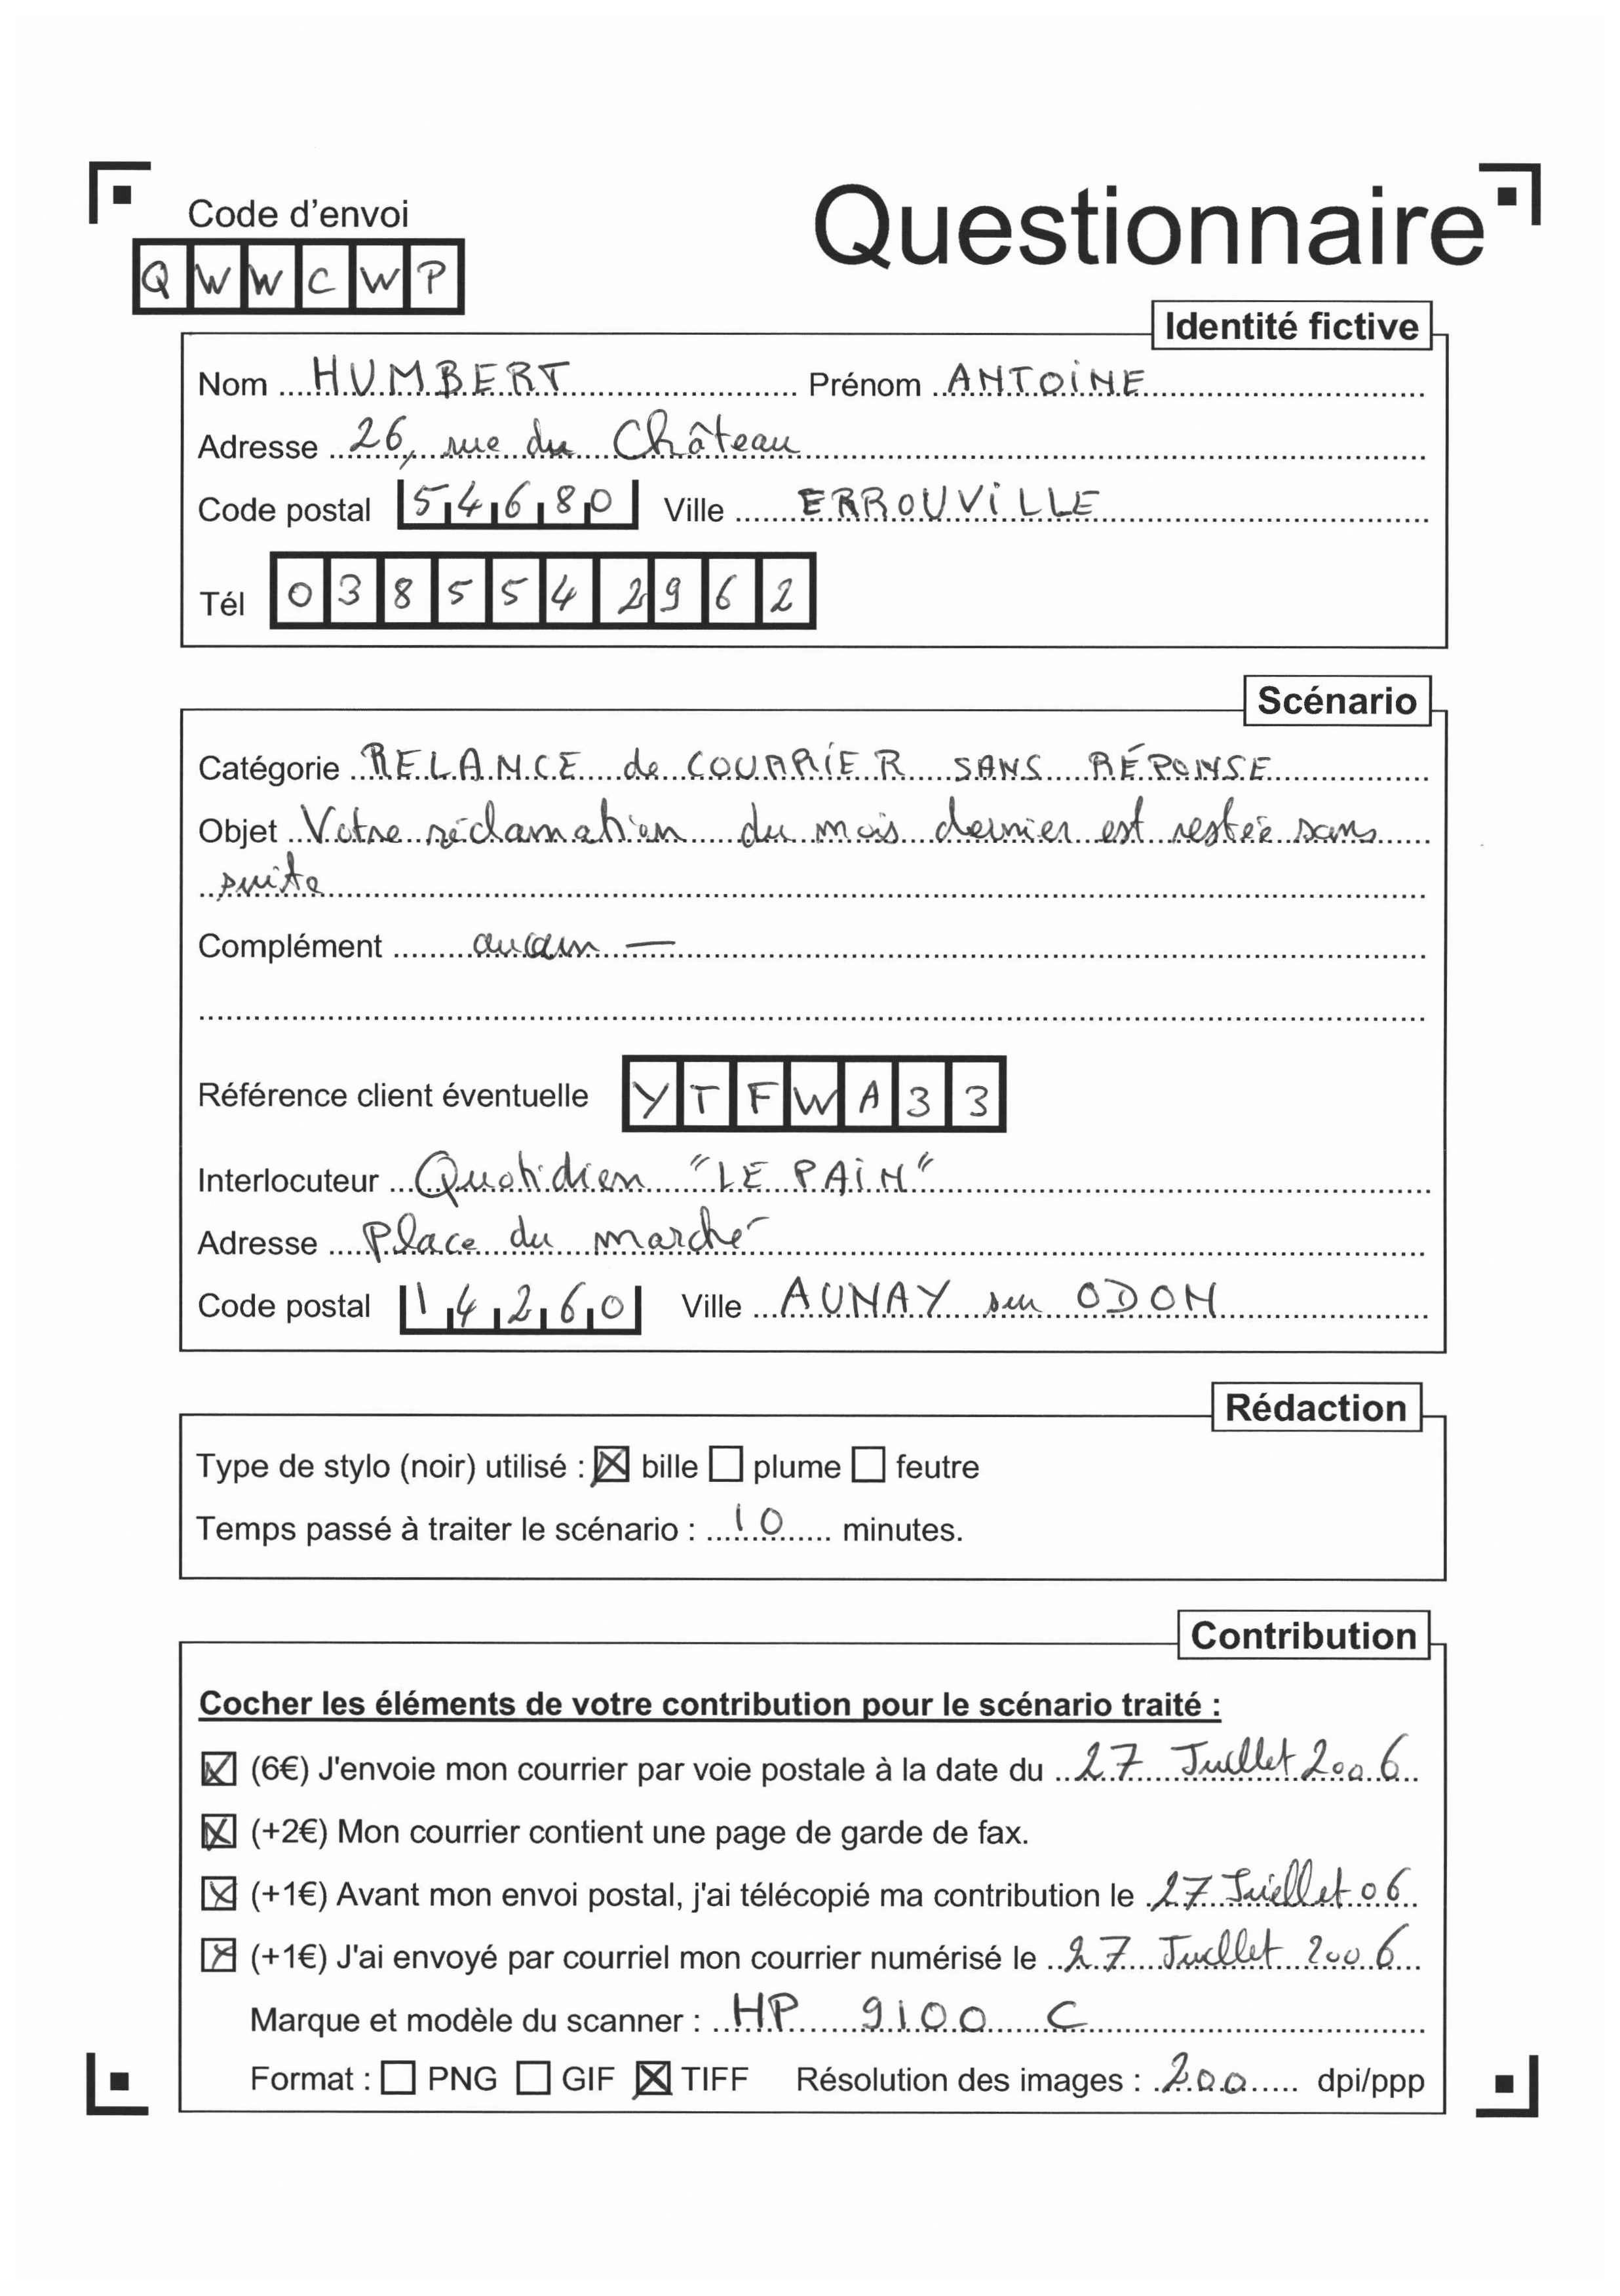 Code d'envoi
Questionnaire
QWWCWP
Identité fictive
Nom HUMBERT Prénom ANTOINE
Adresse 26, rue du Château
Code postal 54680 Ville ERROUVILLE
Tél 0385542962
Scénario
Catégorie RELANCE de COURRIER SANS RÉPONSE
Objet Votre réclamation du mois dernier est restée sans
suite
Complément aucun —
Référence client éventuelle YTFWA33
Interlocuteur Quotidien "LE PAIN"
Adresse Place du marché
Code postal 14260 Ville AUNAY sur ODON
Rédaction
Type de stylo (noir) utilisé : ☒ bille ☐ plume ☐ feutre
Temps passé à traiter le scénario : 10 minutes.
Contribution
Cocher les éléments de votre contribution pour le scénario traité :
☒ (6€) J'envoie mon courrier par voie postale à la date du 27 Juillet 2006
☒ (+2€) Mon courrier contient une page de garde de fax.
☒ (+1€) Avant mon envoi postal, j'ai télécopié ma contribution le 27 Juillet 06
☒ (+1€) J'ai envoyé par courriel mon courrier numérisé le 27 Juillet 2006
Marque et modèle du scanner : HP 9100 C
Format : ☐ PNG ☐ GIF ☒ TIFF Résolution des images : 200 dpi/ppp